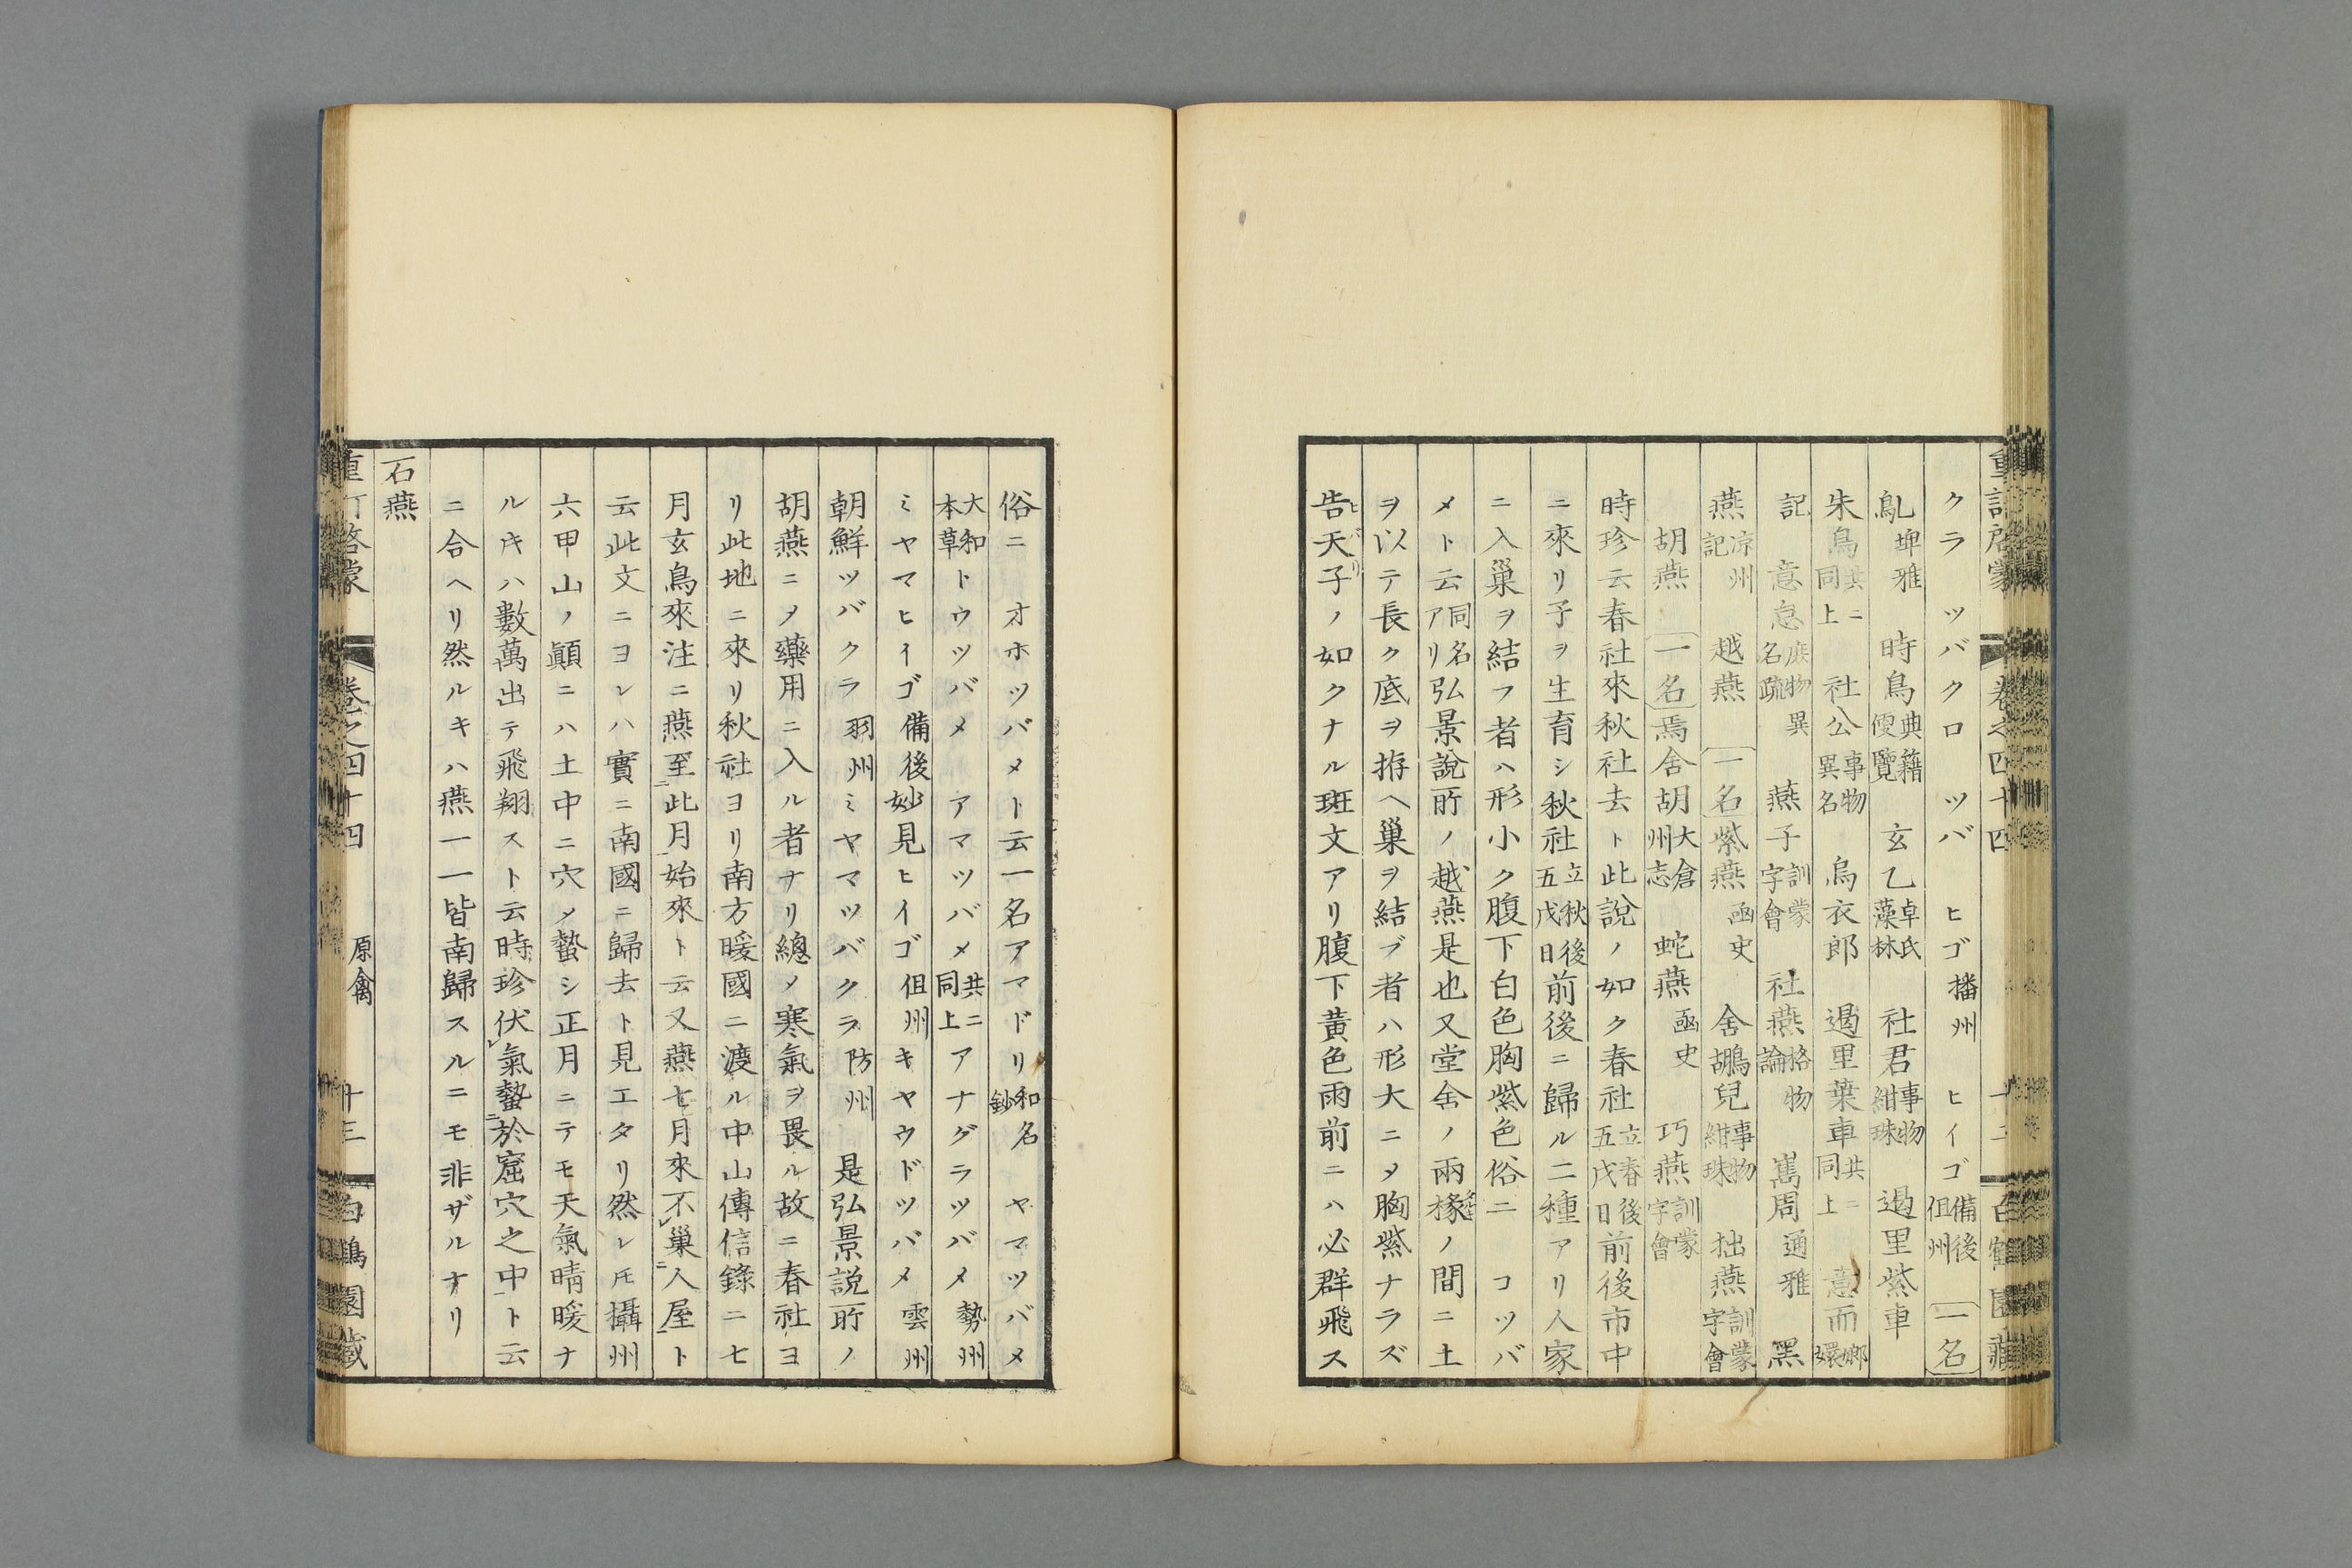 クラ ツバクロ ツバ ヒゴ播州 ヒイゴ備後佀州 一名
鳦埤雅 時鳥典籍便覽 玄乙卓氏藻林 社君事物紺珠 遏里紫車
朱鳥共ニ同上 社公事物異名 烏衣郎 遏里葉車共ニ同上 意而嫏嬛
記 意怠庶物異名疏 燕子訓蒙字會 社燕格物論 嶲周通雅 黑
燕凉州記 越燕 一名紫燕函史 舍鶘兒事物紺珠 拙燕訓蒙字會
胡燕 一名焉舍胡大倉州志 蛇燕函史 巧燕訓蒙字會
時珍云春社來秋社去ト此說ノ如ク春社立春後五戊日前後市中
ニ來リ子ヲ生育シ秋社立秋後五戊日前後ニ歸ル二種アリ人家
ニ入巢ヲ結フ者ハ形小ク腹下白色胸紫色俗ニ コツバ
メト云同名アリ弘景說所ノ越燕是也又堂舍ノ兩椽ノ間ニ土
ヲ以テ長ク底ヲ拵ヘ巢ヲ結ブ者ハ形大ニメ胸紫ナラズ
告天子ヒバリノ如クナル斑文アリ腹下黃色雨前ニハ必群飛ス
俗ニ オホツバメト云一名アマドリ和名鈔 ヤマツバメ
大和本草トウツバメ アマツバメ共ニ同上アナグラツバメ勢州
ミヤマヒイゴ備後妙見ヒイゴ佀州キヤウドツバメ雲州
朝鮮ツバクラ羽州ミヤマツバクラ防州 是弘景説所ノ
胡燕ニメ藥用ニ入ル者ナリ總メ寒氣ヲ畏ル故ニ春社ヨ
リ此地ニ來リ秋社ヨリ南方暖國ニ渡ル中山傳信錄ニ七
月玄鳥來注ニ燕至此月始來ト云又燕七月來不巢人屋ト
云此文ニヨレハ實ニ南國ニ歸去ト見エタリ然レ𪜈攝州
六甲山ノ顚ニハ土中ニ穴メ蟄シ正月ニテモ天氣晴暖ナ
ルキハ數萬出テ飛翔スト云時珍伏氣蟄於窟穴之中ト云
ニ合ヘリ然ルキハ燕一一皆南歸スルニモ非ザルナリ
石燕
重訂啓蒙 卷之四十四 原禽 十三